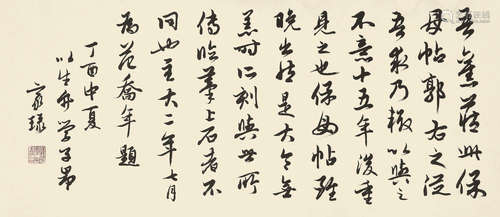 吾舊藏此保
母帖郭右之從
吾求乃輟以與之
不意十五年後重
見之也保母帖雖
晚出然是大令無
恙時所刻與世所
傳臨摹上石者不
同也至大二年七月
為范喬年題
丁酉中夏
以生 學子昂
家